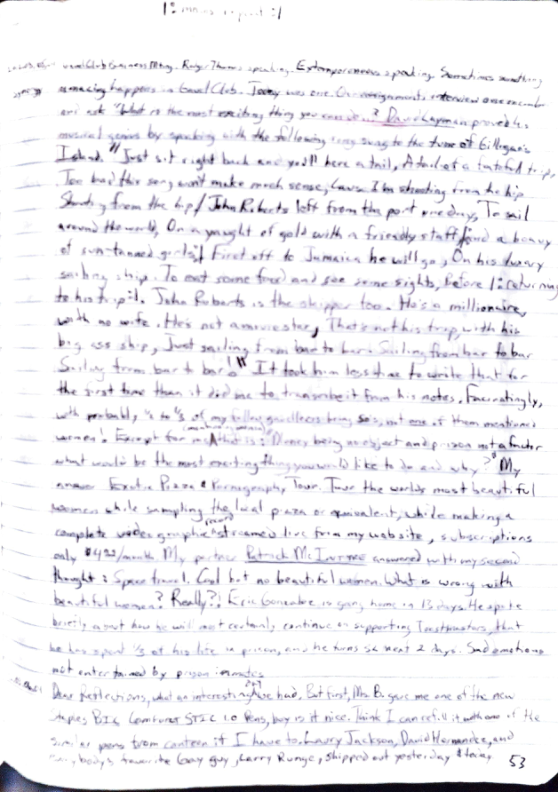 Gavel Club Business Mtng. Roger Thomas speaking. Extemporaneous speaking. Sometimes something
amazing happens in Gavel Club. Today was one. On assignment: interview one
and ask "What is the most exciting thing you can do...? David Layman proved his
musical genius by speaking with the following song sung to the tune of Gilligan's
Island. "Just sit right back and you'll here a tail, A tail of a fateful trip,
Too bad this song won't make much sense, Cause I'm shooting from the hip
Shooting from the hip / John Roberts left from the port one day, To sail
around the world, On a yaught of gold with a friendly staff and a heavy
of sun-tanned girls; First off to Jamaica he will go, On his luxury
sailing ship. To eat some food and see some sights, Before returning
to his trip. John Roberts is the skipper too. He's a millionaire,
with no wife. He's not a movie star, That's not his trip, with his
big ass ship, Just sailing from bar to bar. Sailing from bar to bar
Sailing from bar to bar!" It took him less time to write that for
the first time than it did me to transcribe it from his notes. Fascinatingly,
with probably 1/4 to 1/3 of my fellow gavelleers being so's, not one of them mentioned
women! Except for me, that is: Money being no object and prison not a factor
what would be the most exciting thing you would like to do and why?" My
answer Exotic Pizza & Pornography Tour. Tour the worlds most beautiful
women while sampling the local pizza or equivalent, while making a
complete video graphic record streamed live from my website, subscriptions
only $4.99/month. My partner Patrick McIntyre answered with my second
thought: Space travel. Cool but no beautiful women. What is wrong with
beautiful women? Really?; Eric Gonzalez is going home in 13 days. He spoke
briefly about how he will most certainly continue on supporting Toastmasters, that
he has spent 1/3 of his life in prison, and he turns 56 next 2 days. Sad emotions
not entertained by prison inmates
Dear Reflections, what an interesting day I've had. But first, Ms. B. gave me one of the new
Staples BIC Comfort STIC 1.0 Pens, boy is it nice. Think I can refill it with one of the
similar pens from canteen if I have to. Laury Jackson, David Hernandez, and
everybody's favorite Gay guy, Larry Runge, shipped out yesterday & today
53